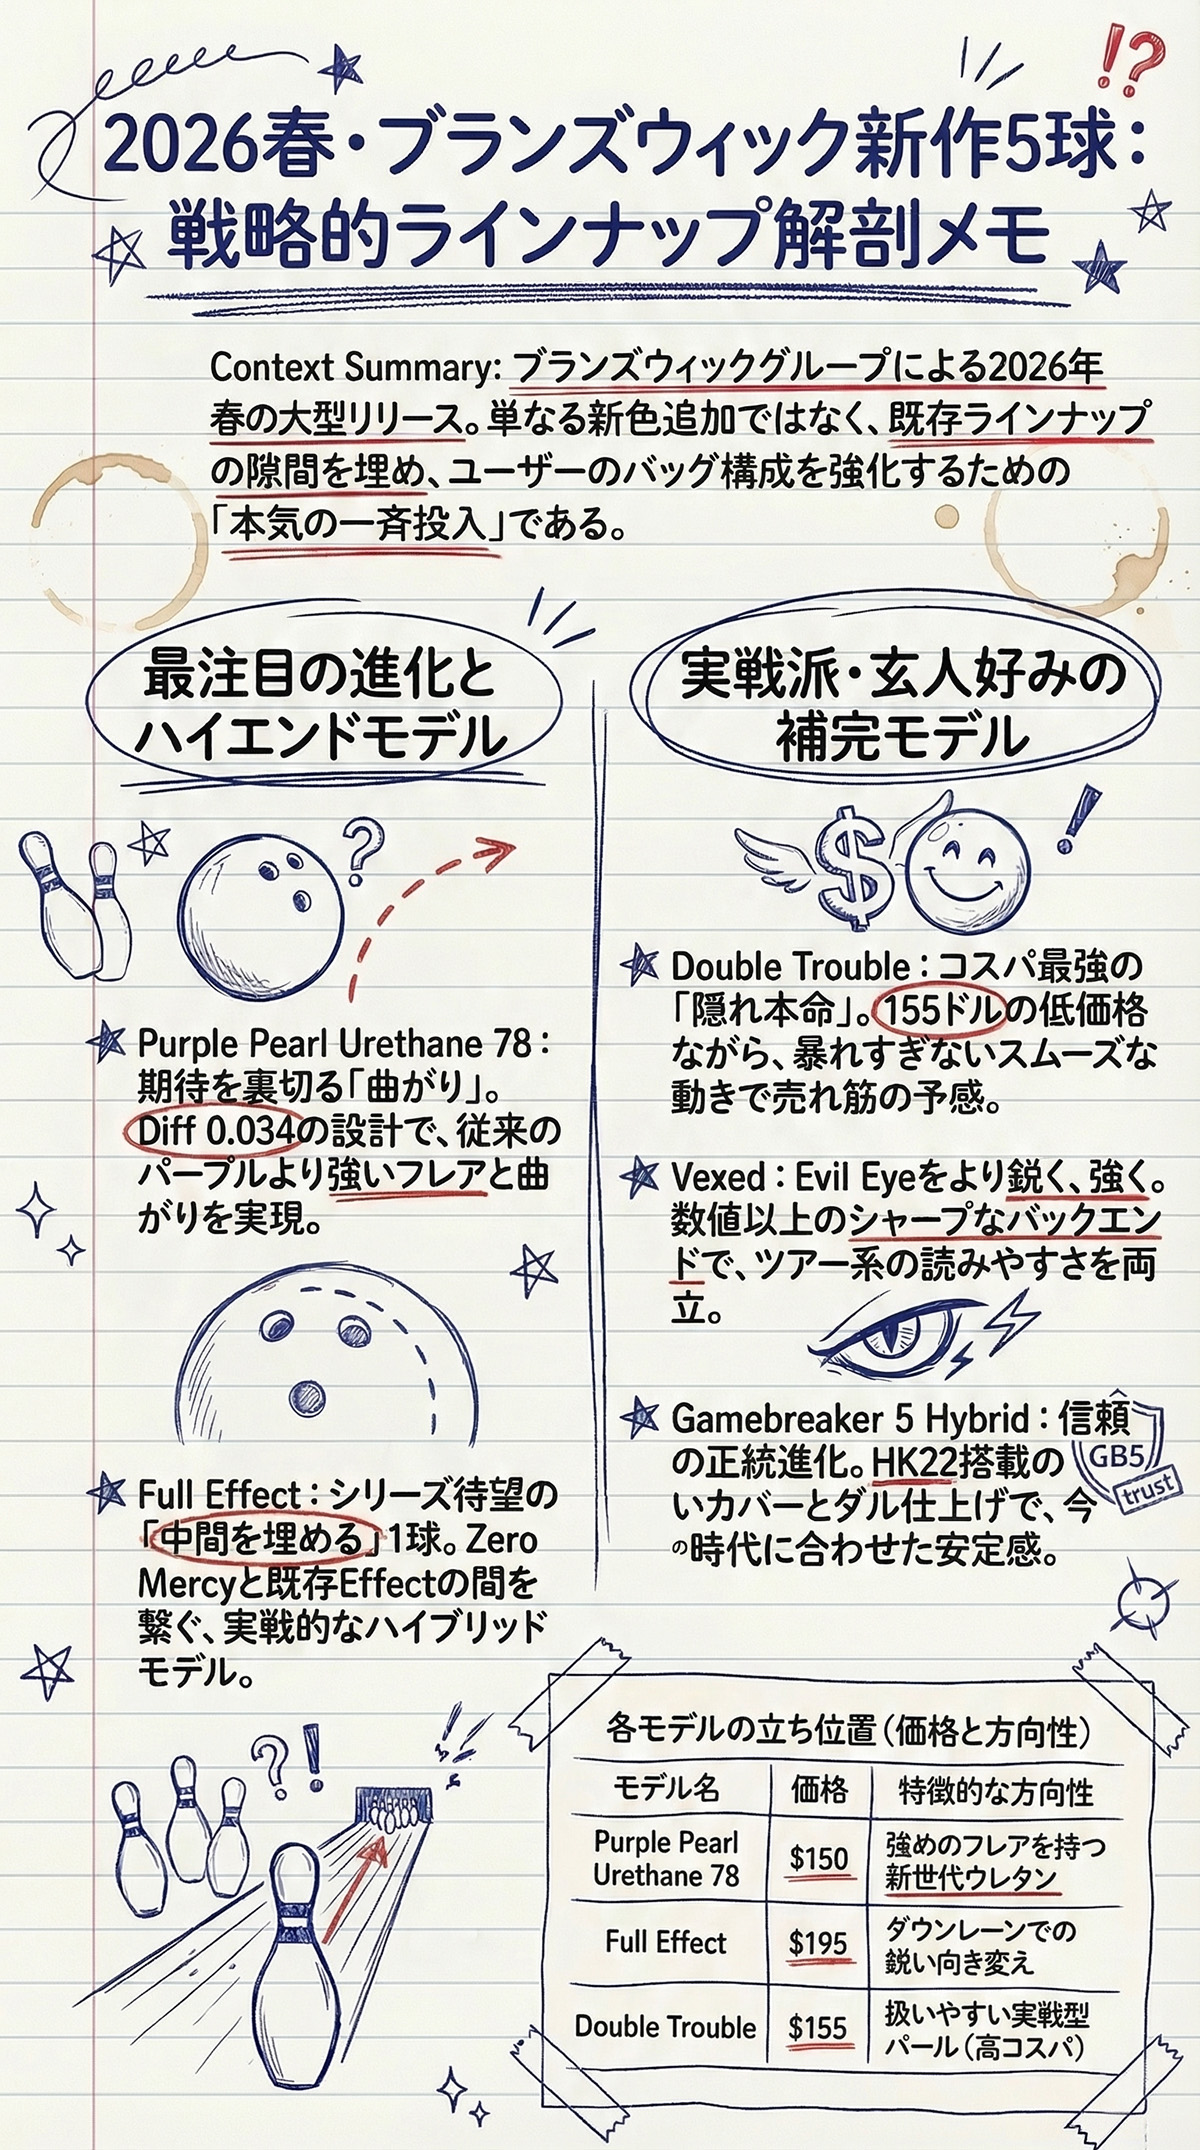 !?
2026春・ブランズウィック新作5球：
戦略的ラインナップ解剖メモ
Context Summary: ブランズウィックグループによる2026年
春の大型リリース。単なる新色追加ではなく、既存ラインナップ
の隙間を埋め、ユーザーのバッグ構成を強化するための
「本気の一斉投入」である。
最注目の進化と
ハイエンドモデル
?
Purple Pearl Urethane 78：
期待を裏切る「曲がり」。
Diff 0.034の設計で、従来の
パープルより強いフレアと曲
がりを実現。
Full Effect：シリーズ待望の
「中間を埋める」1球。Zero
Mercyと既存Effectの間を
繋ぐ、実戦的なハイブリッド
モデル。
?!
実戦派・玄人好みの
補完モデル
$
!
Double Trouble：コスパ最強の
「隠れ本命」。155ドルの低価格
ながら、暴れすぎないスムーズな
動きで売れ筋の予感。
Vexed：Evil Eyeをより鋭く、強く。
数値以上のシャープなバックエン
ドで、ツアー系の読みやすさを両
立。
Gamebreaker 5 Hybrid：信頼
の正統進化。HK22搭載の
いカバーとダル仕上げで、今
の時代に合わせた安定感。
GB5
trust
各モデルの立ち位置（価格と方向性）
モデル名 価格 特徴的な方向性
Purple Pearl
Urethane 78
$150
強めのフレアを持つ
新世代ウレタン
Full Effect
$195
ダウンレーンでの
鋭い向き変え
Double Trouble
$155
扱いやすい実戦型
パール（高コスパ）